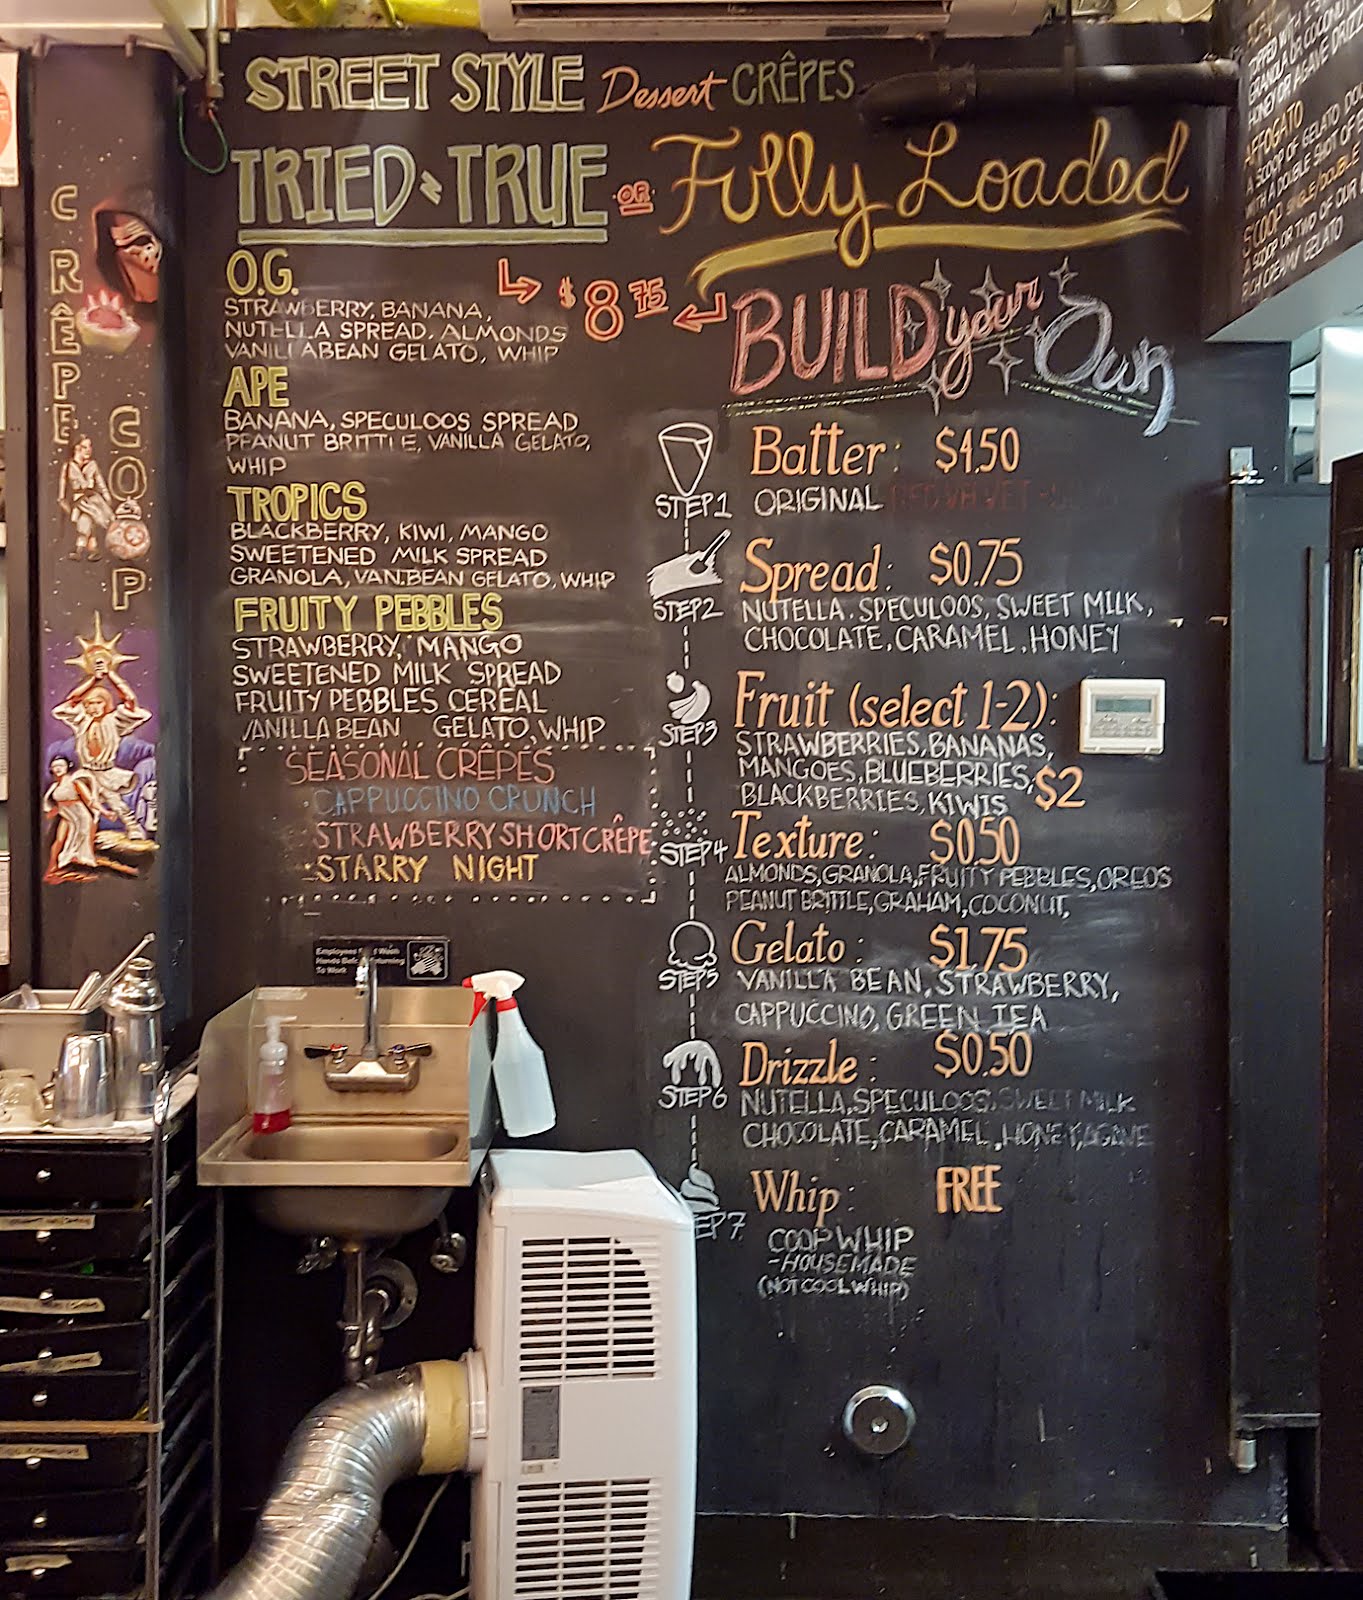 STREET STYLE Dessert CRÊPES
TRIED N TRUE OR Fully Loaded
$8.75
O.G.
STRAWBERRY, BANANA,
NUTELLA SPREAD, ALMONDS
VANILLABEAN GELATO, WHIP
APE
BANANA, SPECULOOS SPREAD
PEANUT BRITTLE, VANILLA GELATO,
WHIP
TROPICS
BLACKBERRY, KIWI, MANGO
SWEETENED MILK SPREAD
GRANOLA, VAN.BEAN GELATO, WHIP
FRUITY PEBBLES
STRAWBERRY, MANGO
SWEETENED MILK SPREAD
FRUITY PEBBLES CEREAL
VANILLA BEAN GELATO, WHIP
SEASONAL CRÊPES
CAPPUCCINO CRUNCH
STRAWBERRY SHORTCRÊPE
STARRY NIGHT
BUILD your Own
STEP 1
Batter: $4.50
ORIGINAL RED VELVET
STEP 2
Spread: $0.75
NUTELLA. SPECULOOS, SWEET MILK,
CHOCOLATE, CARAMEL, HONEY
STEP 3
Fruit (select 1-2):
STRAWBERRIES, BANANAS,
MANGOES, BLUEBERRIES, $2
BLACKBERRIES, KIWIS
STEP 4
Texture: $0.50
ALMONDS, GRANOLA, FRUITY PEBBLES, OREOS
PEANUT BRITTLE, GRAHAM, COCONUT,
STEP 5
Gelato: $1.75
VANILLA BEAN, STRAWBERRY,
CAPPUCCINO, GREEN TEA
STEP 6
Drizzle: $0.50
NUTELLA, SPECULOOS, SWEET MILK
CHOCOLATE, CARAMEL, HONEY, AGAVE
EP 7
Whip: FREE
COOP WHIP
-HOUSEMADE
(NOT COOL WHIP)
CRÊPE
COOP
Employees Must Wash
Hands Before Returning
To Work
GRANOLA OR COCONUT
HONEY OR AGAVE DRIZZ
AFFOGATO
A SCOOP OF GELATO
WITH A DOUBLE SHOT OF
SCOOP SINGLE/DOUBLE
A SCOOP OR TWO OF OUR
RICH CREAMY GELATO